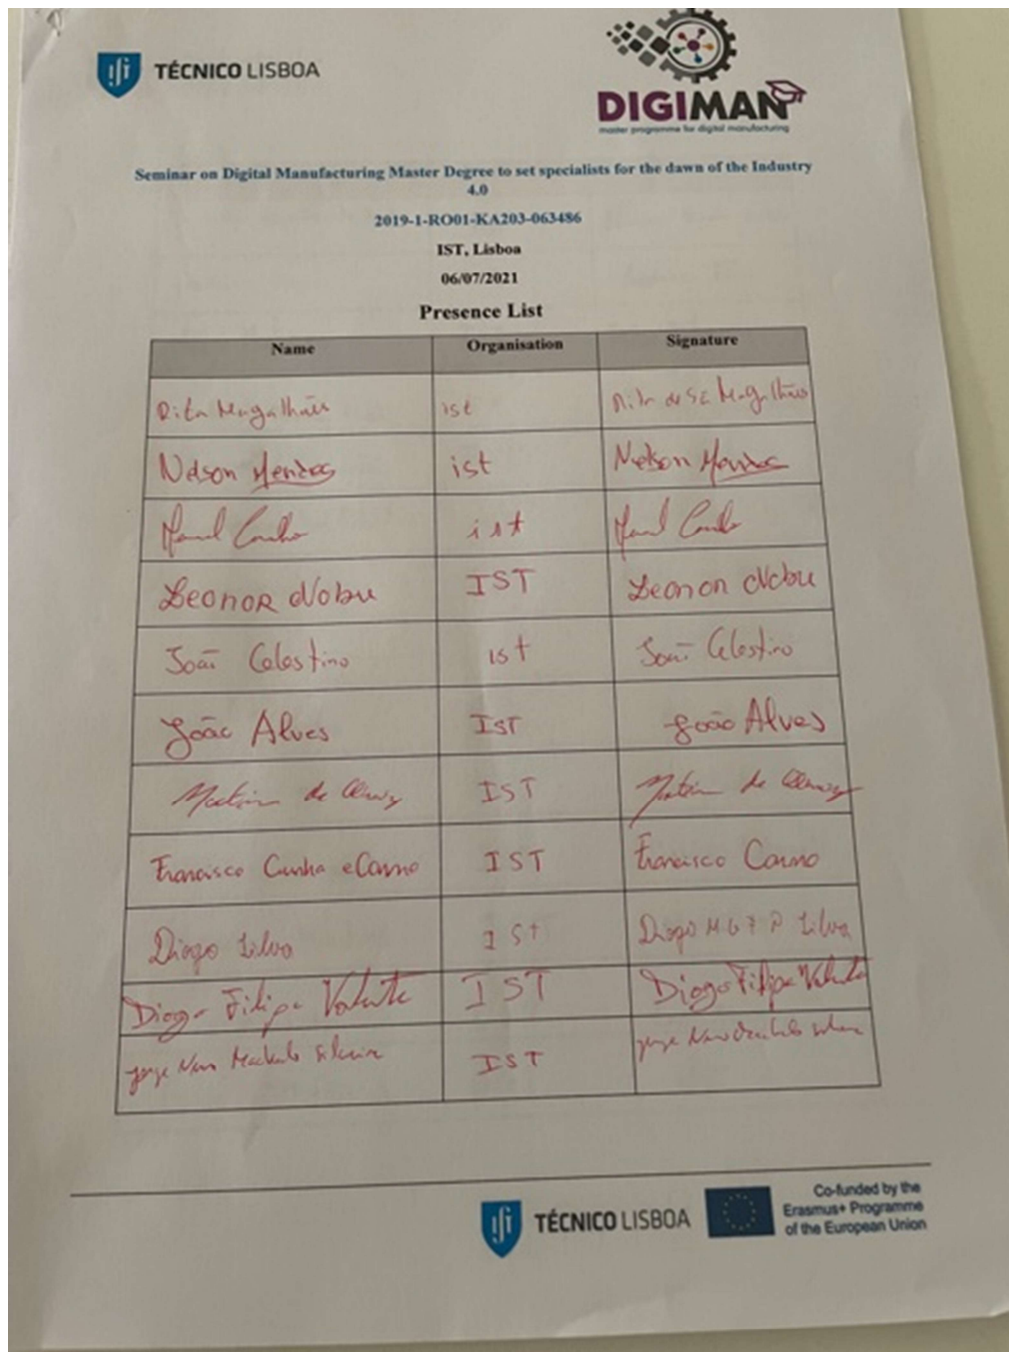 TÉCNICO LISBOA
DIGIMAN
master programme for digital manufacturing
Seminar on Digital Manufacturing Master Degree to set specialists for the dawn of the Industry
4.0
2019-1-RO01-KA203-063486
IST, Lisboa
06/07/2021
Presence List
Name Organisation Signature
Rita Magalhães ist Rita de Sá Magalhães
Nelson Mendes ist Nelson Mendes
ist
Leonor Nobre IST Leonor Nobre
João Celestino ist João Celestino
João Alves IST João Alves
de IST de
Francisco Cunha e Carmo IST Francisco Carmo
Diogo Silva IST Diogo Silva
Diogo Filipe Valente IST Diogo Filipe Valente
Jorge Nuno Machado IST Jorge Nuno
TÉCNICO LISBOA
Co-funded by the
Erasmus+ Programme
of the European Union